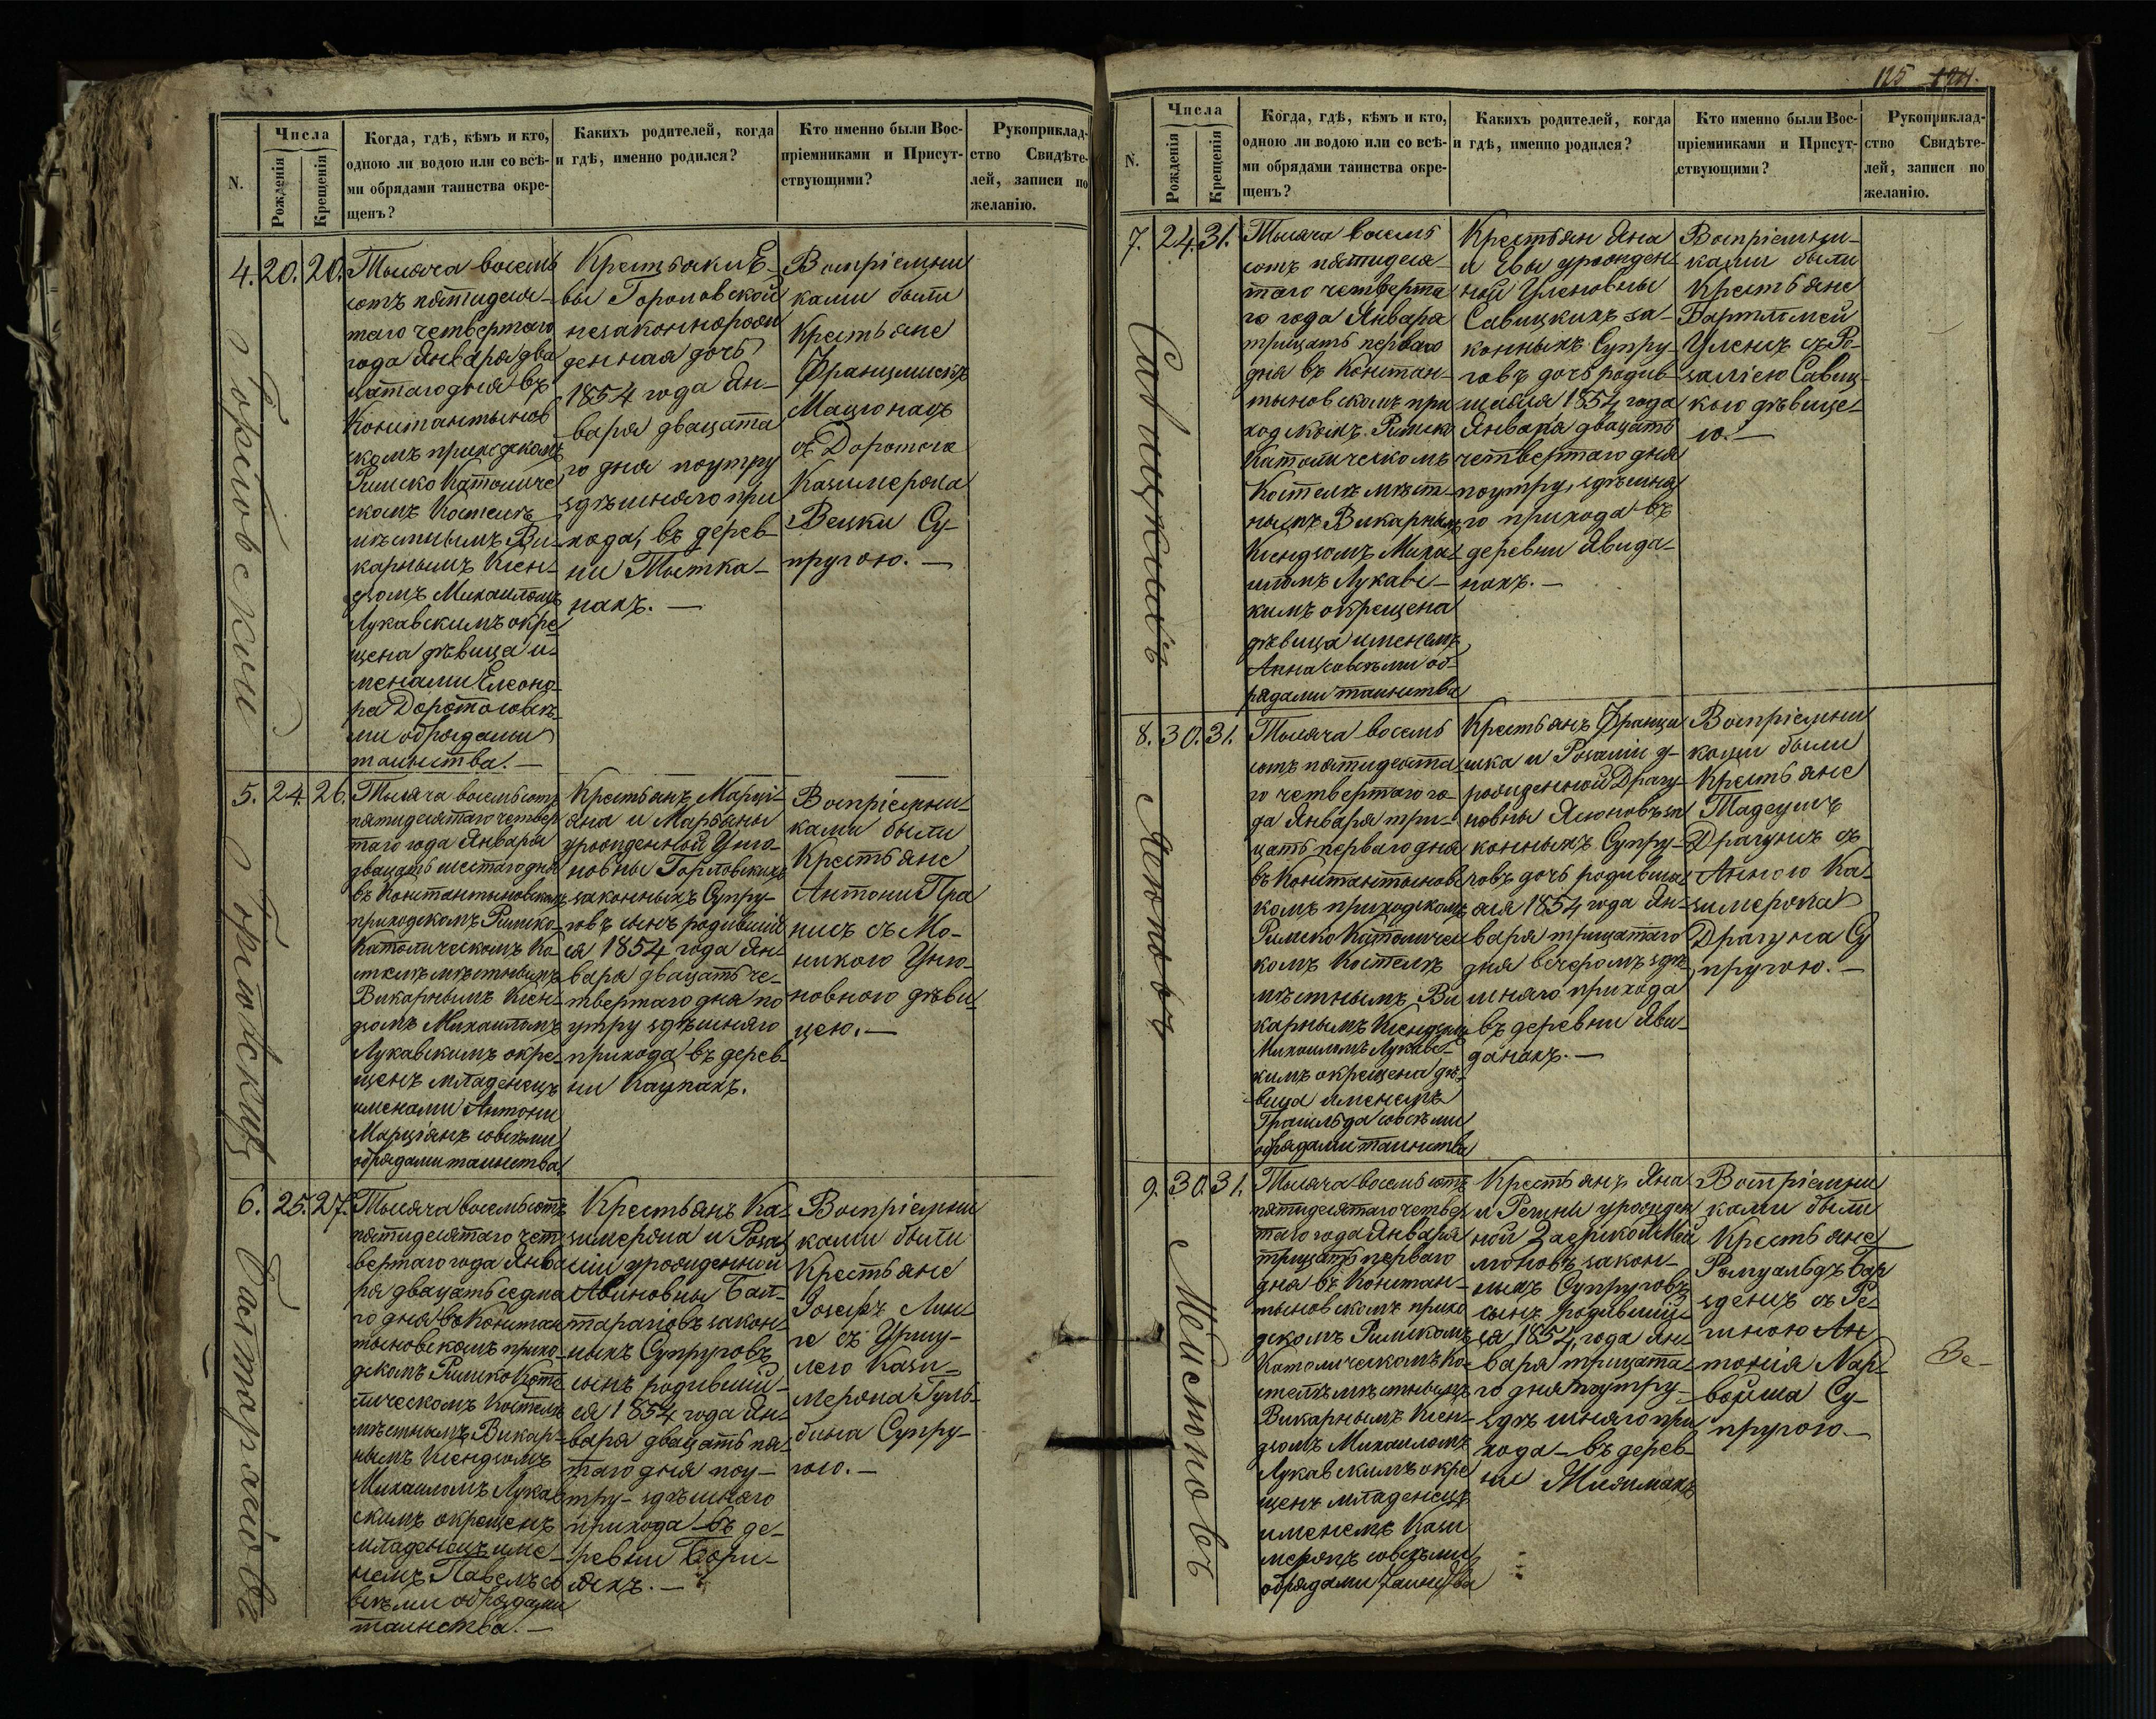 N.
Числа
Рожденія
Крещенія
Когда, гдѣ, кѣмъ и кто,
одною ли водою или со всѣ-
ми обрядами таинства окре-
щенъ?
Какихъ родителей, когда
и гдѣ, именно родился?
Кто именно были Вос-
пріемниками и Присут-
ствующими?
Рукоприклад-
ство Свидѣте-
лей, записи по
желанію.
4. 20. 20.
Тысяча восемь
сотъ пятидеся-
таго четвертаго
года Января два
цатаго дня въ
Констант­ынов
скомъ приходскомъ
Римско Католиче
скомъ Костелѣ
мѣстнымъ Ви-
карнымъ Ксен-
дзомъ Михаиломъ
Лукавскимъ окре
щена дѣвица и-
менами Елеоно-
ра Дорота со всѣ-
ми обрядами
таинства. —
Крестьянки Е-
вы Гориовской
незаконнорож
денная дочь
1854 года Ян-
варя двацата
го дня поутру
здѣшняго при
хода, въ дерев-
ни
нахъ. —
Воспріемни
ками были
Крестьяне
Францишекъ
съ Доротою
Казимерова
Су-
пругою. —
5. 24. 26.
Тысяча восемь сотъ
пятидесятаго четвер
таго года Января
двацать шестаго дня
въ Константыновскомъ
приходскомъ Римско-
Католическомъ Ко-
стелѣ мѣстнымъ
Викарнымъ Ксен-
дзомъ Михаиломъ
Лукавскимъ окре-
щенъ младенецъ
именами Антони
Марціянъ со всѣми
обрядами таинства
Крестьянъ Марці-
яна и Марьяны
урожденной
новны Горловскихъ
законныхъ Супру-
говъ сынъ родившій
ся 1854 года Ян-
варя двацать че-
твертаго дня по
утру здѣшняго
прихода въ дерев-
ни
Воспріемни-
ками были
Крестьяне
Антони Пра
нисъ съ Мо-
никою
новною дѣви
цею. —
6. 25. 27.
Тысяча восемь сотъ
пятидесятаго чет
вертаго года Янва
ря двацать седма
го дня въ Констан
тыновскомъ прихо-
дскомъ Римско Като
лическомъ Костелѣ
мѣстнымъ Викар-
нымъ Ксендзомъ
Михаиломъ Лукав
скимъ окрещенъ
младенецъ име-
немъ Павелъ со
всѣми обрядами
таинства. —
Крестьянъ Ка-
зимеряна и Роза
ліи урожденной
Бал-
тарагіовъ закон-
ныхъ Супруговъ
сынъ родившій-
ся 1854 года Ян-
варя двацать пя-
таго дня поу-
тру здѣшняго
прихода въ де-
ревни
Воспріемни
ками были
Крестьяне
Іозефъ Лин
ге съ Уршу-
лею Кази-
мерона Гуль-
бина Супру-
гою. —
125
N.
Числа
Рожденія
Крещенія
Когда, гдѣ, кѣмъ и кто,
одною ли водою или со всѣ-
ми обрядами таинства окре-
щенъ?
Какихъ родителей, когда
и гдѣ, именно родился?
Кто именно были Вос-
пріемниками и Присут-
ствующими?
Рукоприклад-
ство Свидѣте-
лей, записи по
желанію.
7. 24. 31.
Савицкихъ
Тысяча восемь
сотъ пятидеся-
таго четверта
го года Января
трицать перваго
дня въ Констан-
тыновскомъ при
ходскомъ Римско
Католическомъ
Костелѣ мѣст-
нымъ Викарнымъ
Ксендзомъ Миха-
иломъ Лукавс-
кимъ окрещена
дѣвица именемъ
Анна со всѣми об-
рядами таинства
Крестьян Яна
и Евы урожден-
ной Уленовны
Савицкихъ за-
конныхъ Супру-
говъ дочь родив-
шаяся 1854 года
Января двацать
четвертаго дня
поутру, здѣшня
го прихода въ
деревни Явида-
нахъ. —
Воспріемни-
ками были
Крестьяне
Бартломей
Уленъ съ Ро-
заліею Савиц-
кою дѣвице-
ю. —
8. 30. 31.
Тысяча восемь
сотъ пятидесята
го четвертаго го-
да Января три-
цать перваго дня
въ Константыновс
комъ приходскомъ
Римско Католичес
комъ Костелѣ
мѣстнымъ Ви
карнымъ Ксендзомъ
Михаиломъ Лукавс-
кимъ окрещена дѣ-
вица именемъ
со всѣми
обрядами таинства
Крестьянъ Франци
шка и Розаліи у-
рожденной Драгу-
новны за
конныхъ Супру-
говъ дочь родивша-
яся 1854 года Ян-
варя трицатаго
дня вечеромъ здѣ
шняго прихода
въ деревни Яви-
данахъ. —
Воспріемни
ками были
Крестьяне
Тадеушъ
Драгунъ съ
Анною Ка-
зимерона
Драгуна Су
пругою. —
9. 30. 31.
Тысяча восемь сотъ
пятидесятаго четвер
таго года Января
трицать перваго
дня въ Констан-
тыновскомъ прихо
дскомъ Римскомъ
Католическомъ Ко-
стелѣ мѣстнымъ
Викарнымъ Ксен-
дзомъ Михаиломъ
Лукавскимъ окре
щенъ младенецъ
именемъ Кази
мерянъ со всѣми
обрядами таинства
Крестьянъ Яна
и Регины урожден
ной
закон-
ныхъ Супруговъ
сынъ родившій-
ся 1854 года Ян-
варя трицата-
го дня поутру
здѣшняго при
хода въ дерев-
ни
Воспріемни
ками были
Крестьяне
Ромуальдъ Бар
зденъ съ Ре-
гиною Ан
тонія Нар-
войша Су-
пругою. —